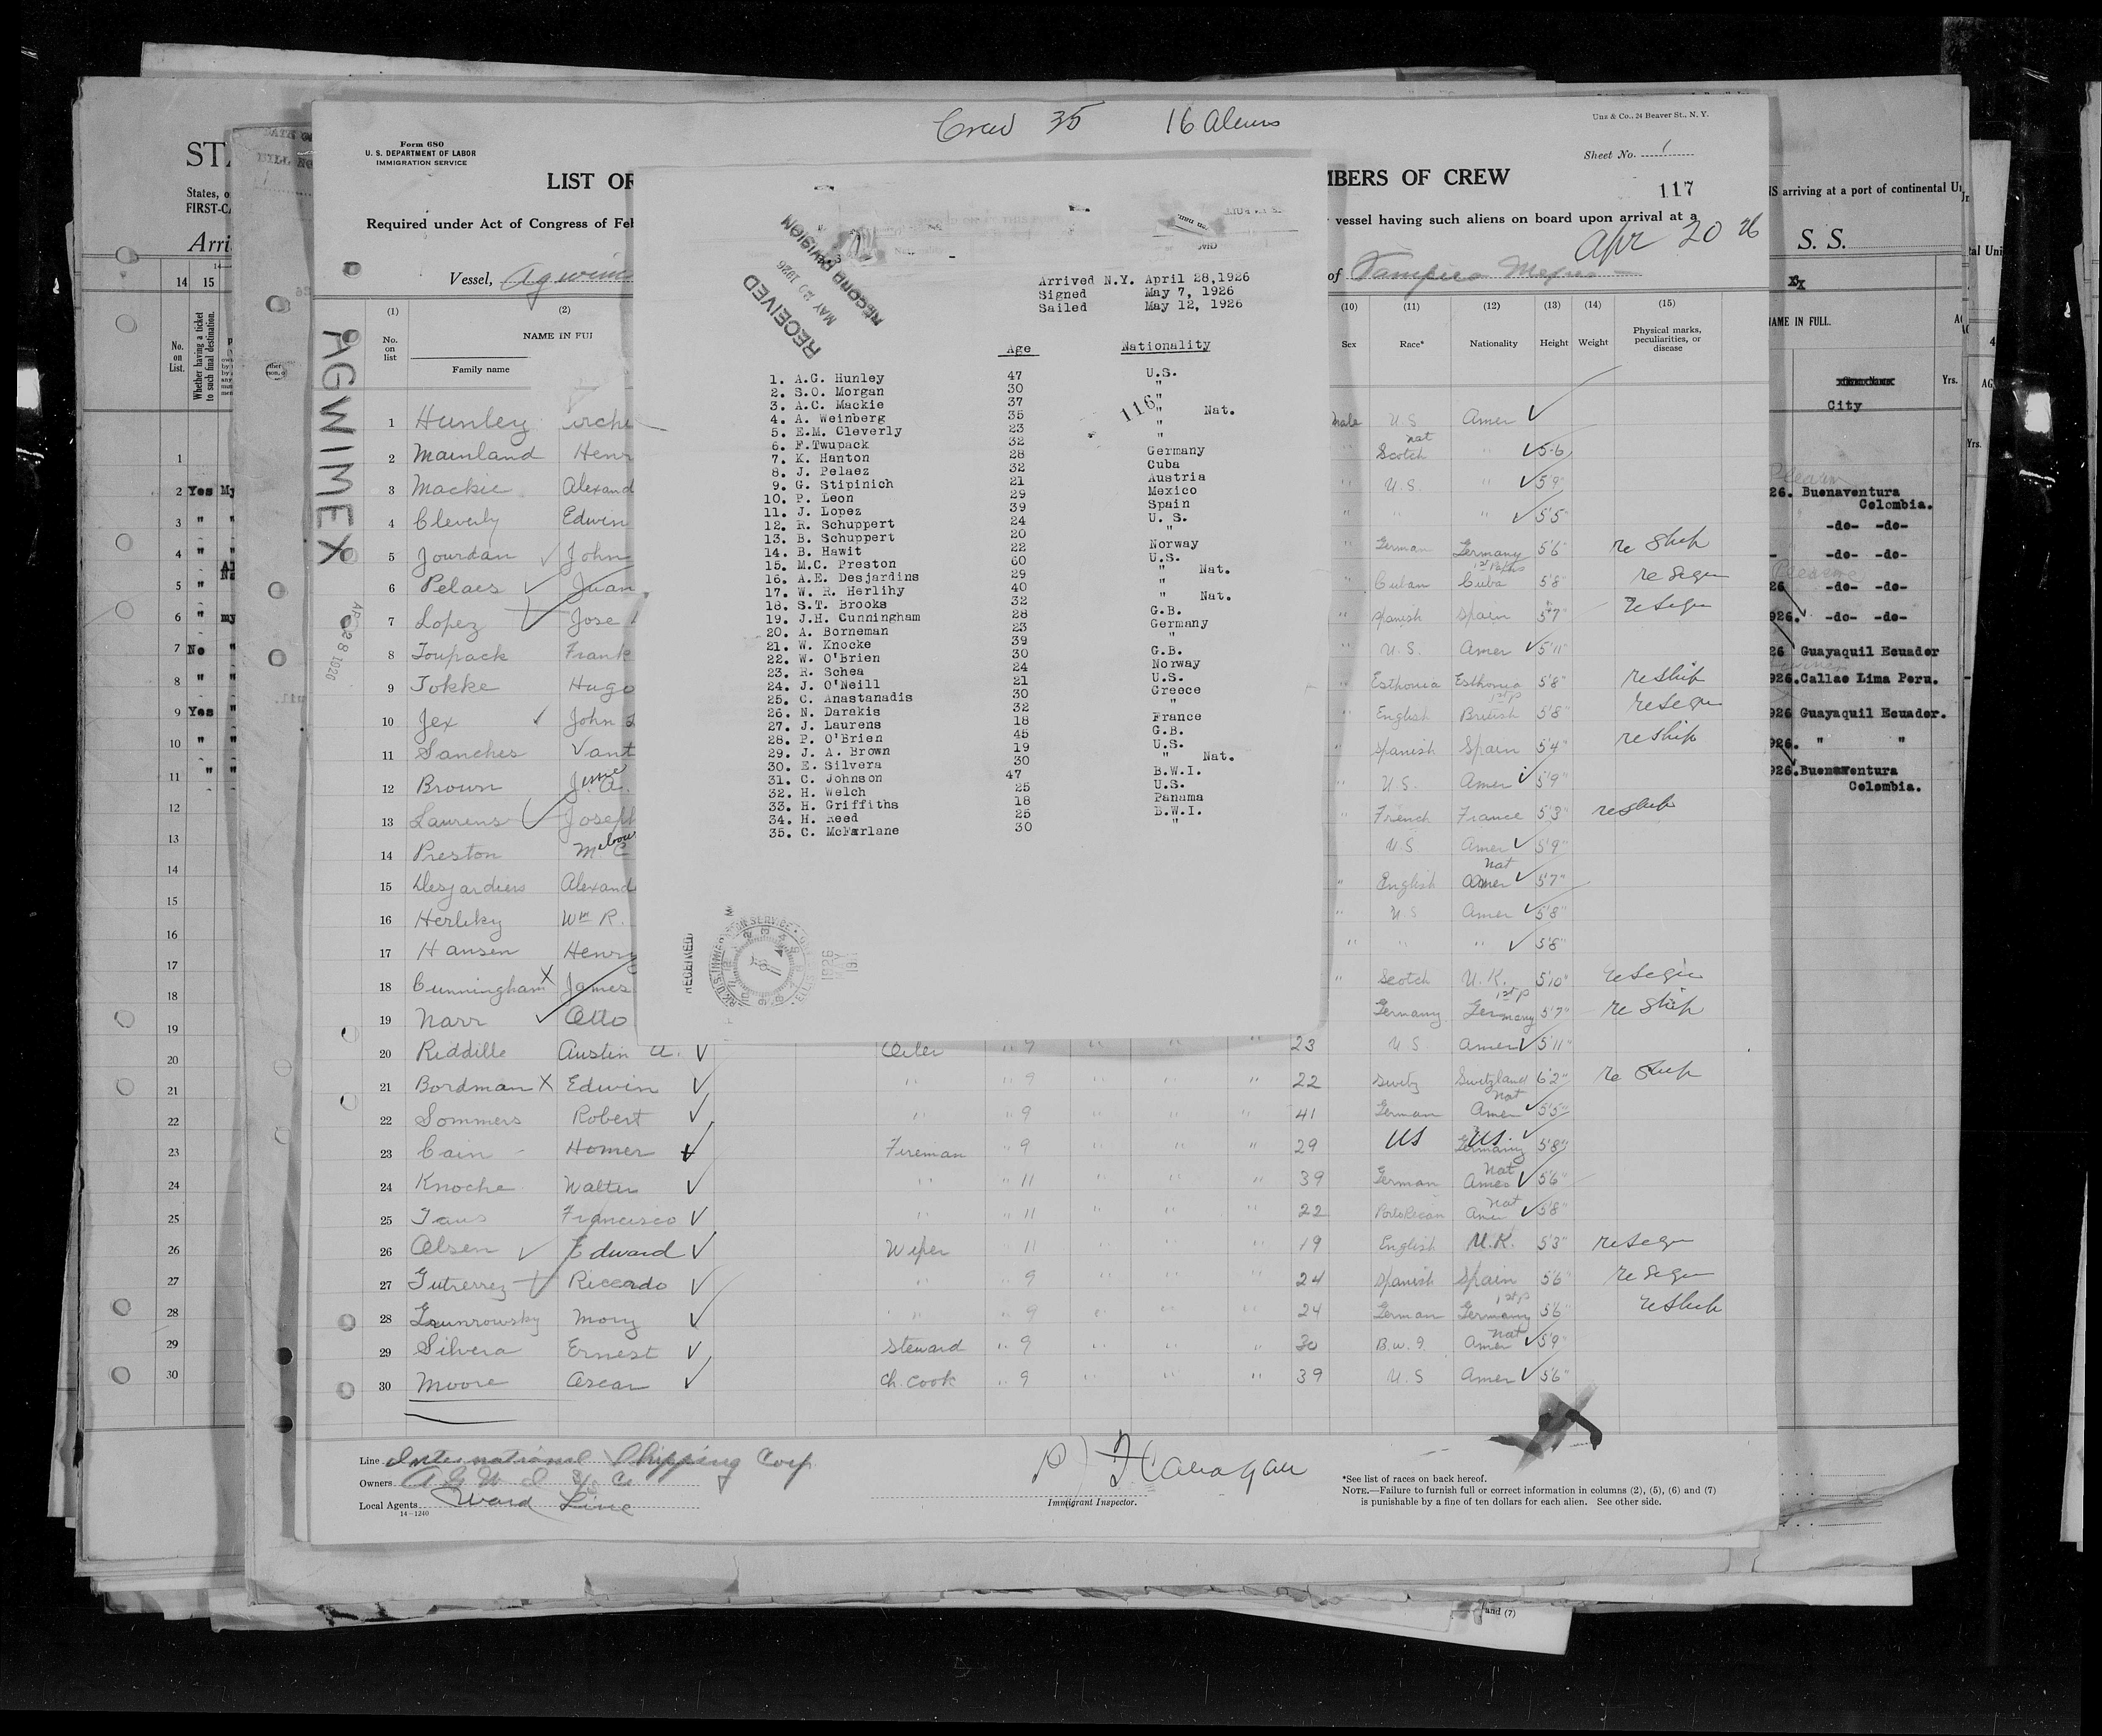 Crew 35 16 Aliens
Uns & Co., 24 Beaver St., N. Y.
Form 680
U. S. DEPARTMENT OF LABOR
IMMIGRATION SERVICE
Sheet No. 1
117
LIST OF
MBERS OF CREW
Required under Act of Congress of Feb
vessel having such aliens on board upon arrival at a
Apr 20 26
Vessel,
of Tampico Mexico
AGWIMEX
APR 28 1926
RECEIVED
MAY 20 1926
RECORD DIVISION
Arrived N.Y. April 28,1926
Signed May 7, 1926
Sailed May 12, 1926
Age Nationality
1. A.C. Hunley 47 U.S.
2. S.O. Morgan 30 "
3. A.C. Mackie 37 "
4. A. Weinberg 35 " Nat.
5. E.M. Cleverly 23 "
6. F.Twupack 32 "
7. K. Hanton 28 Germany
8. J. Pelaez 32 Cuba
9. G. Stipinich 21 Austria
10. P. Leon 29 Mexico
11. J. Lopez 39 Spain
12. R. Schuppert 24 U. S.
13. B. Schuppert 20 "
14. B. Hawit 22 Norway
15. M.C. Preston 60 U.S.
16. A.E. Desjardins 29 " Nat.
17. W. R. Herlihy 40 "
18. S.T. Brooks 32 " Nat.
19. J.H. Cunningham 28 G.B.
20. A. Borneman 23 Germany
21. W. Knocke 39 "
22. W. O'Brien 30 G.B.
23. R. Schea 24 Norway
24. J. O'Neill 21 U.S.
25. C. Anastanadis 30 Greece
26. N. Darakis 32 "
27. J. Laurens 18 France
28. P. O'Brien 45 G.B.
29. J. A. Brown 19 U.S.
30. E. Silvera 30 " Nat.
31. C. Johnson 47 B.W.I.
32. H. Welch 25 U.S.
33. H. Griffiths 18 Panama
34. H. Reed 25 B.W.I.
35. C. McFarlane 30 "
116
RECEIVED
(1) (2) (10) (11) (12) (13) (14) (15)
No. on list
NAME IN FUL
Family name
Sex Race* Nationality Height Weight Physical marks, peculiarities, or disease
1 Hunley Arche male U S Amer
2 Mainland Henr " Scotch nat " 5-6
3 Mackie Alexand " U.S. " 5'9"
4 Cleverly Edwin " " " 5'5"
5 Jourdan John " German Germany 5'6" re ship
6 Pelaes Juan " Cuban Cuba 5'8" resign
7 Lopez Jose " Spanish Spain 5'7" resign
8 Toupack Frank " U.S. Amer 5'11"
9 Tokke Hugo " Esthonia Esthonia 5'8" reship
10 Jex John " English British 5'8" resign
11 Sanches Vant " Spanish Spain 5'4" reship
12 Brown J. A. " U.S. Amer 5'9"
13 Laurens Joseph French France 5'3" reship
14 Preston M. C U.S Amer 5'9"
15 Desjardins Alexand " English Amer nat 5'7"
16 Herlihy Wm R. " U S Amer 5'8"
17 Hansen Henry " " " 5'8"
18 Cunningham X James " Scotch U.K. 5'10" resign
19 Narr Otto Germany Germany 5'7" re ship
20 Riddille Austin A. Oiler " 9 " " " 23 U S Amer 5'11"
21 Bordman X Edwin " " 9 " " " 22 Switz Switzland 6'2" re ship
22 Sommers Robert " " 9 " " " 41 German Amer nat 5'5"
23 Cain Homer Fireman " 9 " " " 29 US US Germany 5'8"
24 Knoche Walter " " 11 " " " 39 German Amer nat 5'6"
25 Francisco " " 11 " " " 22 PortoRican Amer nat 5'8"
26 Olsen Edward Wiper " 11 " " " 19 English U.K. 5'3" resign
27 Gutrerrez Riccardo " " 9 " " " 24 Spanish Spain 5'6" resign
28 Mony " " 9 " " " 24 German Germany 5'6" reship
29 Silvera Ernest Steward " 9 " " " 30 B.W.I. Amer nat 5'9"
30 Moore Oscar Ch. Cook " 9 " " " 39 U.S Amer 5'6"
Line International Shipping Corp.
Owners A G W I S/S Co
Local Agents Ward Line
14-1240
Immigrant Inspector.
*See list of races on back hereof.
NOTE.—Failure to furnish full or correct information in columns (2), (5), (6) and (7)
is punishable by a fine of ten dollars for each alien. See other side.
and (7)
STA
States, o
FIRST-CA
Arri
14 15
No. on List.
Whether having a ticket to such final destination.
1
2 Yes My
3 " "
4 " "
5 "
6 " my
7 No "
8 " "
9 Yes "
10 " "
11 " "
12
13
14
15
16
17
18
19
20
21
22
23
24
25
26
27
28
29
30
NS arriving at a port of continental Un
S. S.
NAME IN FULL.
City
Yrs.
26. Buenaventura
Colombia.
-do- -do-
-do- -do-
-do- -do-
926. -do- -do-
26 Guayaquil Ecuador
926.Callao Lima Peru.
926 Guayaquil Ecuador.
926. " "
926.Buenaventura
Colombia.
tal Uni
Yrs.